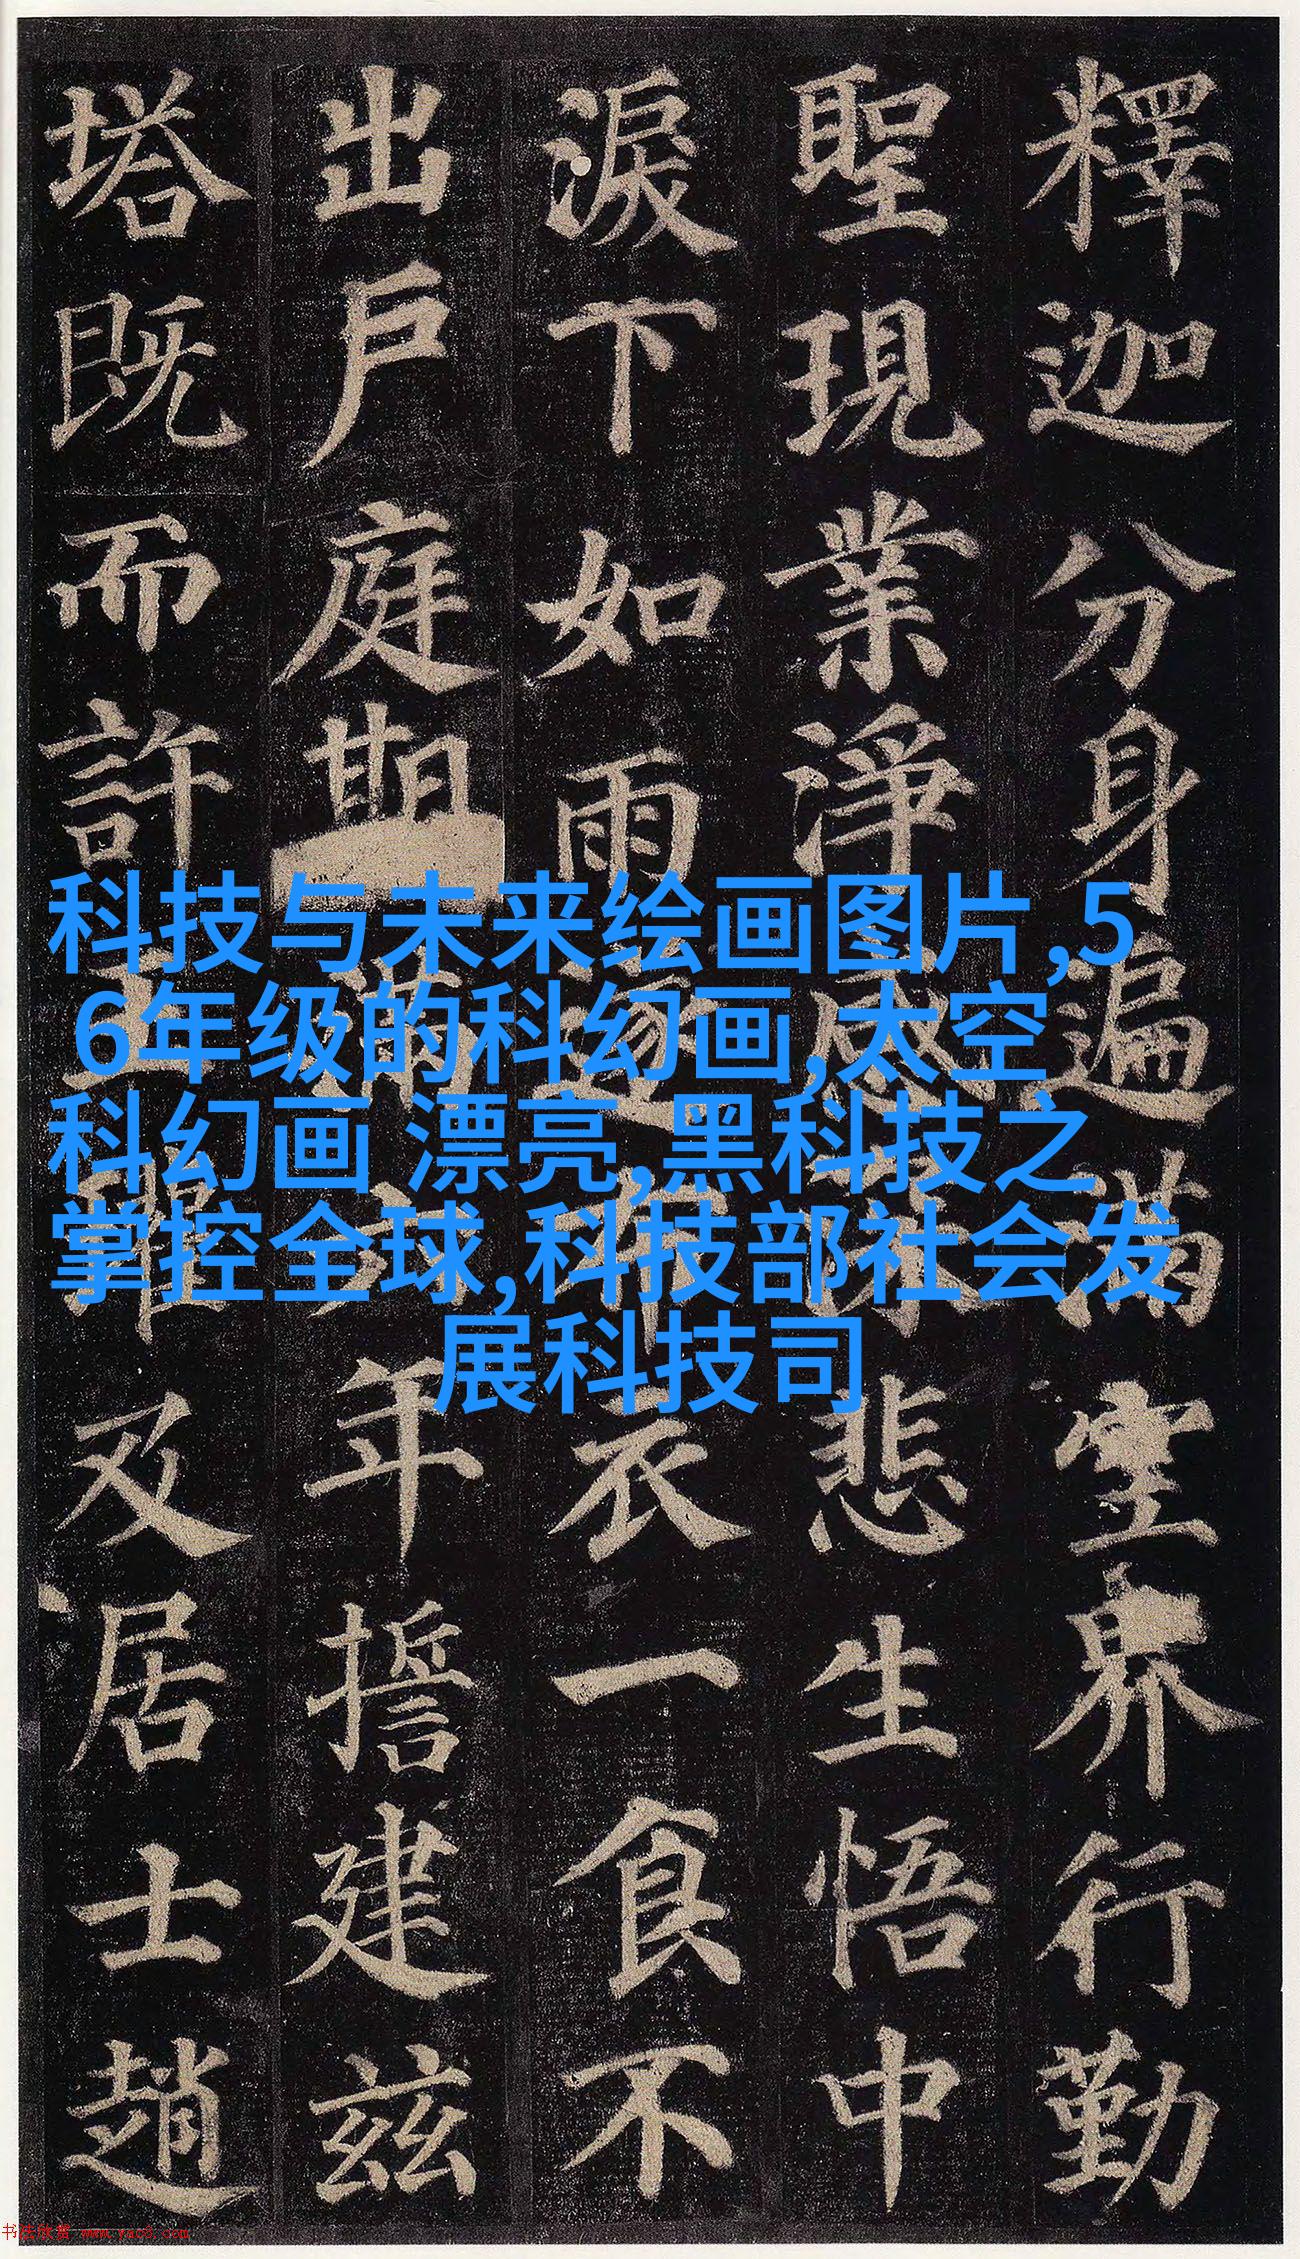 釋迦分身遍滿空界行勤
聖現業淨感深悲生悟中
淚下如雨遂布衣一食不
出戶庭期滿六年誓建茲
塔既而許王瓘及居士趙
科技与未来绘画图片,5
6年级的科幻画,太空
科幻画 漂亮,黑科技之
掌控全球,科技部社会发
展科技司
书法欣赏 www.yac8.com